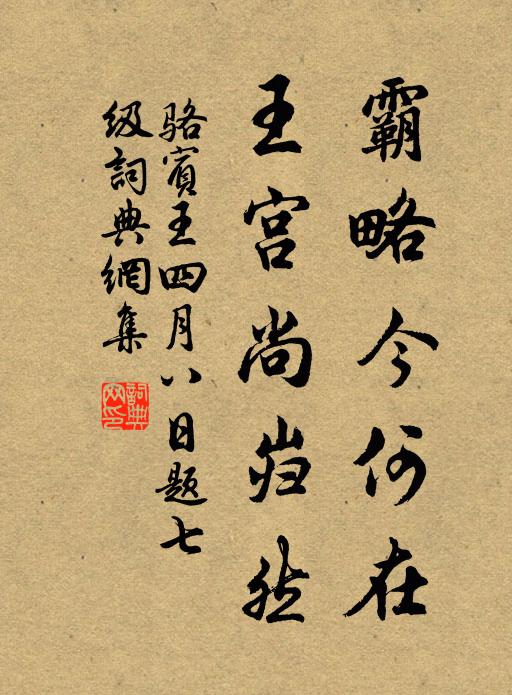 霸略今何在
王宫尚岿然
骆賓王四月八日题七
级詞典網集
詞典
网印